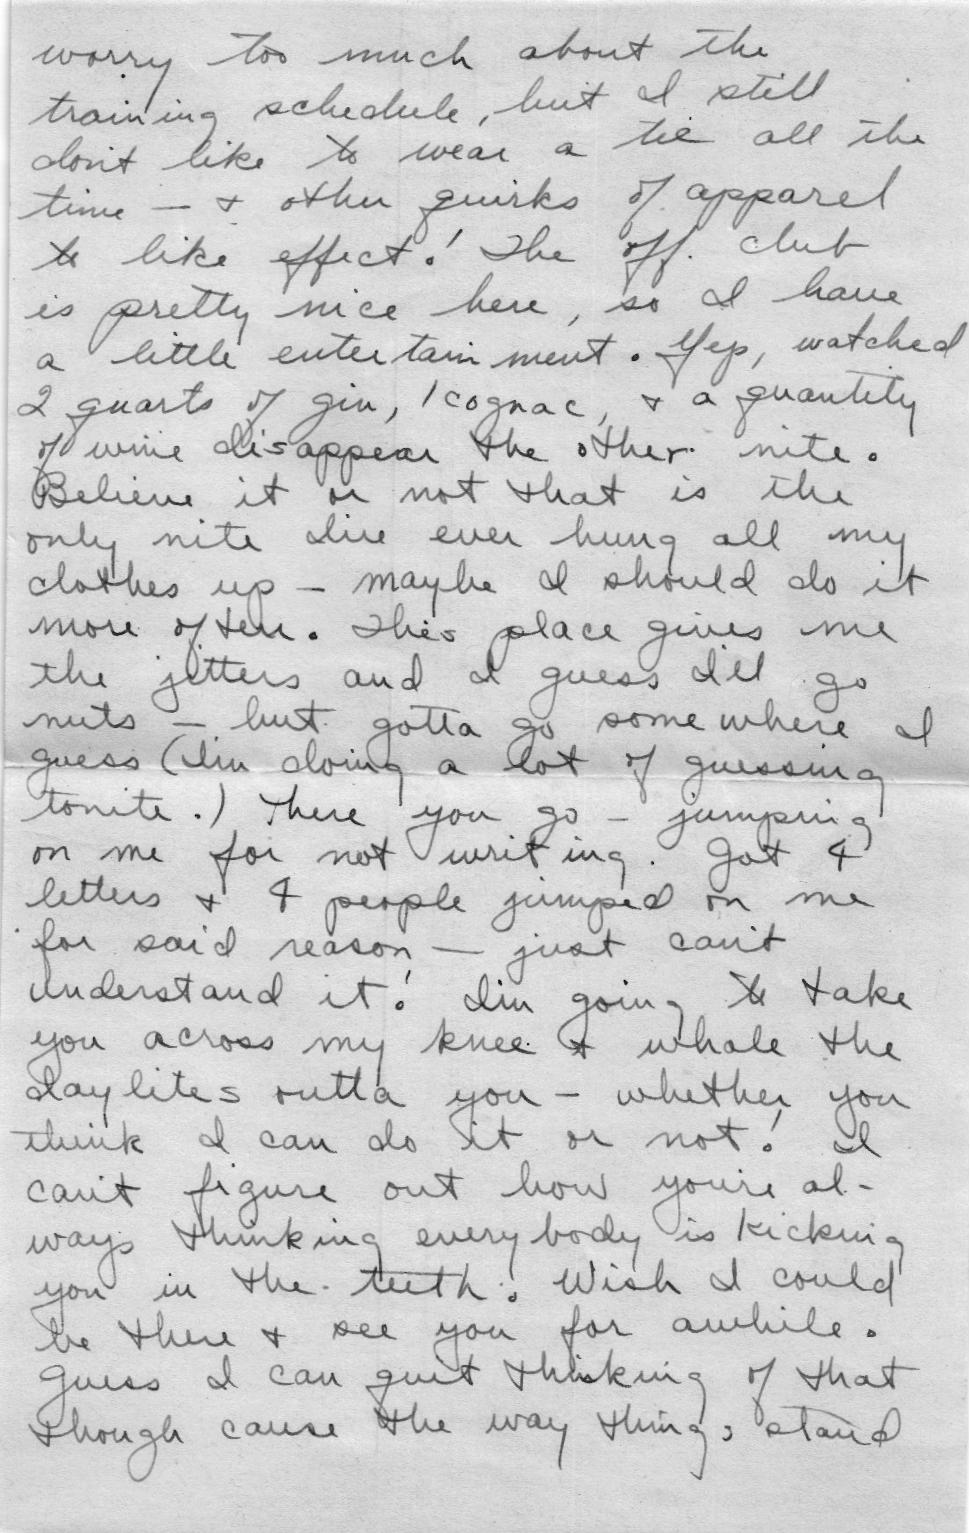 worry too much about the
training schedule, but I still
don't like to wear a tie all the
time — & other quirks of apparel
to like effect! The off. club
is pretty nice here, so I have
a little entertainment. Yep, watched
2 quarts of gin, 1 cognac, & a quantity
of wine disappear the other nite.
Believe it or not that is the
only nite I've ever hung all my
clothes up — maybe I should do it
more often. This place gives me
the jitters and I guess I'll go
nuts — but gotta go somewhere I
guess (I'm doing a lot of guessing
tonite.) There you go — jumping
on me for not writing. Got 4
letters & 4 people jumped on me
for said reason — just can't
understand it! I'm going to take
you across my knee & whale the
daylites outta you — whether you
think I can do it or not! I
can't figure out how you're al-
ways thinking everybody is kicking
you in the teeth. Wish I could
be there & see you for awhile.
Guess I can quit thinking of that
though cause the way things stand